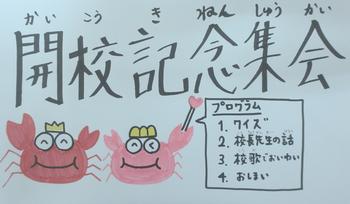 かいこうきねんしゅうかい
開校記念集会
プログラム
1. クイズ
2. 校長先生の話
3. 校歌でおいわい
4. おしまい